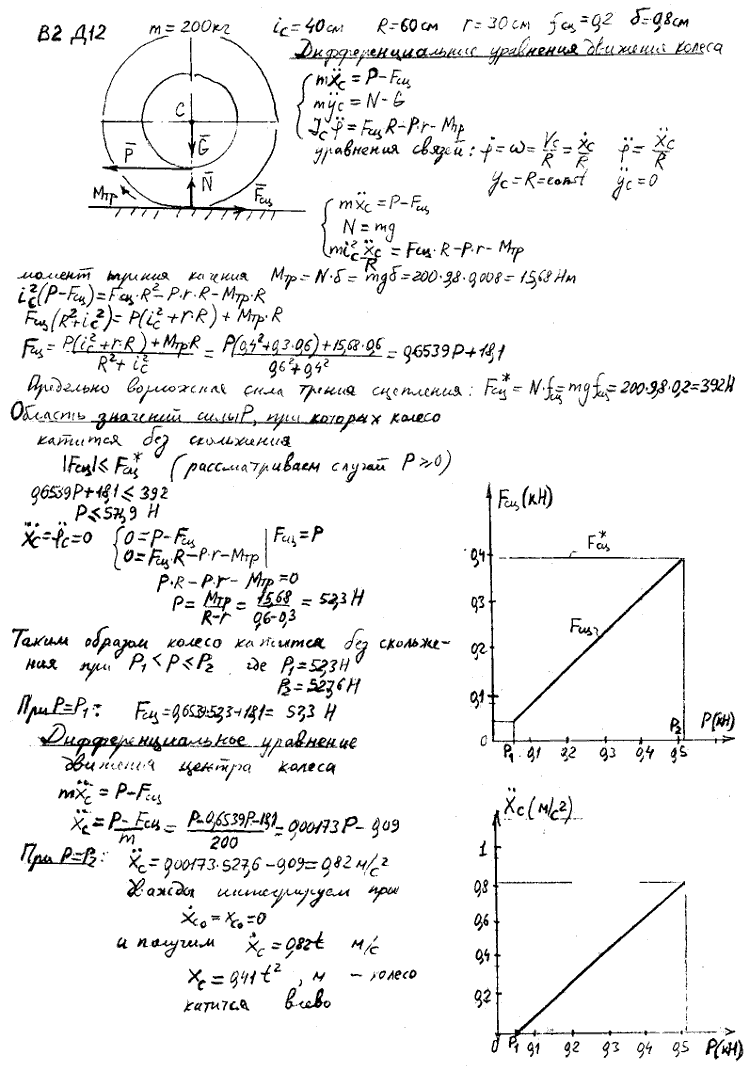 В2 Д12 m = 200 кг i_C = 40 см R = 60 см r = 30 см f_сц = 0,2 δ = 0,8 см
Дифференциальные уравнения движения колеса
mẍ_C = P − F_сц
mÿ_C = N − G
J_C φ̈ = F_сц R − P·r − M_тр
уравнения связей: φ̇ = ω = V_C/R = ẋ_C/R φ̈ = ẍ_C/R
y_C = R = const ÿ_C = 0
C
G̅
P̅
N̅
M_тр
F̅_сц
mẍ_C = P − F_сц
N = mg
mi_C² ẍ_C/R = F_сц·R − P·r − M_тр
момент трения качения M_тр = N·δ = mgδ = 200·9,8·0,008 = 15,68 Нм
i_C²(P − F_сц) = F_сц·R² − P·r·R − M_тр·R
F_сц(R² + i_C²) = P(i_C² + r·R) + M_тр·R
F_сц = (P(i_C² + r·R) + M_тр R)/(R² + i_C²) = (P(0,4² + 0,3·0,6) + 15,68·0,6)/(0,6² + 0,4²) = 0,6539P + 18,1
Предельно возможная сила трения сцепления: F_сц* = N·f_сц = mg f_сц = 200·9,8·0,2 = 392 Н
Область значений силы P, при которых колесо
катится без скольжения
|F_сц| ≤ F_сц* (рассматриваем случай P ≥ 0)
0,6539P + 18,1 ≤ 392
P ≤ 571,9 Н
ẍ_C = φ̈_C = 0 0 = P − F_сц | F_сц = P
0 = F_сц·R − P·r − M_тр
P·R − P·r − M_тр = 0
P = M_тр/(R − r) = 15,68/(0,6 − 0,3) = 52,3 Н
Таким образом колесо катится без скольже-
ния при P₁ < P ≤ P₂ где P₁ = 52,3 Н
P₂ = 527,6 Н
При P = P₁: F_сц = 0,6539·52,3 + 18,1 = 52,3 Н
Дифференциальное уравнение
движения центра колеса
mẍ_C = P − F_сц
ẍ_C = (P − F_сц)/m = (P − 0,6539P − 18,1)/200 = 0,00173P − 0,09
При P = P₂: ẍ_C = 0,00173·527,6 − 0,09 = 0,82 м/с²
Дважды интегрируем при
ẋ_C0 = x_C0 = 0
и получим ẋ_C = 0,82t м/с
x_C = 0,41t², м − колесо
катится влево
F_сц (кН)
F_сц*
0,4
0,3
F_сц
0,2
0,1
P₂ P(кН)
0 P₁ 0,1 0,2 0,3 0,4 0,5
ẍ_C (м/с²)
1
0,8
0,6
0,4
0,2
0 P₁ 0,1 0,2 0,3 0,4 0,5 P(кН)